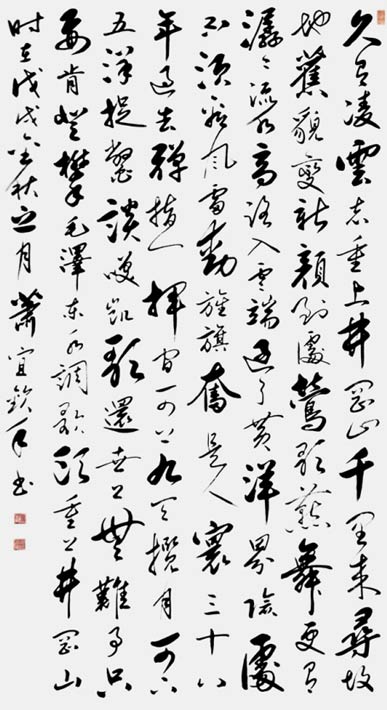 久有凌雲志重上井岡山千里來尋故
地舊貌變新顏到處鶯歌燕舞更有
潺々流水高路入雲端過了黃洋界險處
不須看風雷動旌旗奮是人寰三十八
年過去彈指一揮間可上九天攬月可下
五洋捉鱉談笑凱歌還世上無難事只
要肯登攀毛澤東水調歌頭重上井岡山
时在戊戌金秋之月蕭宜欽手书